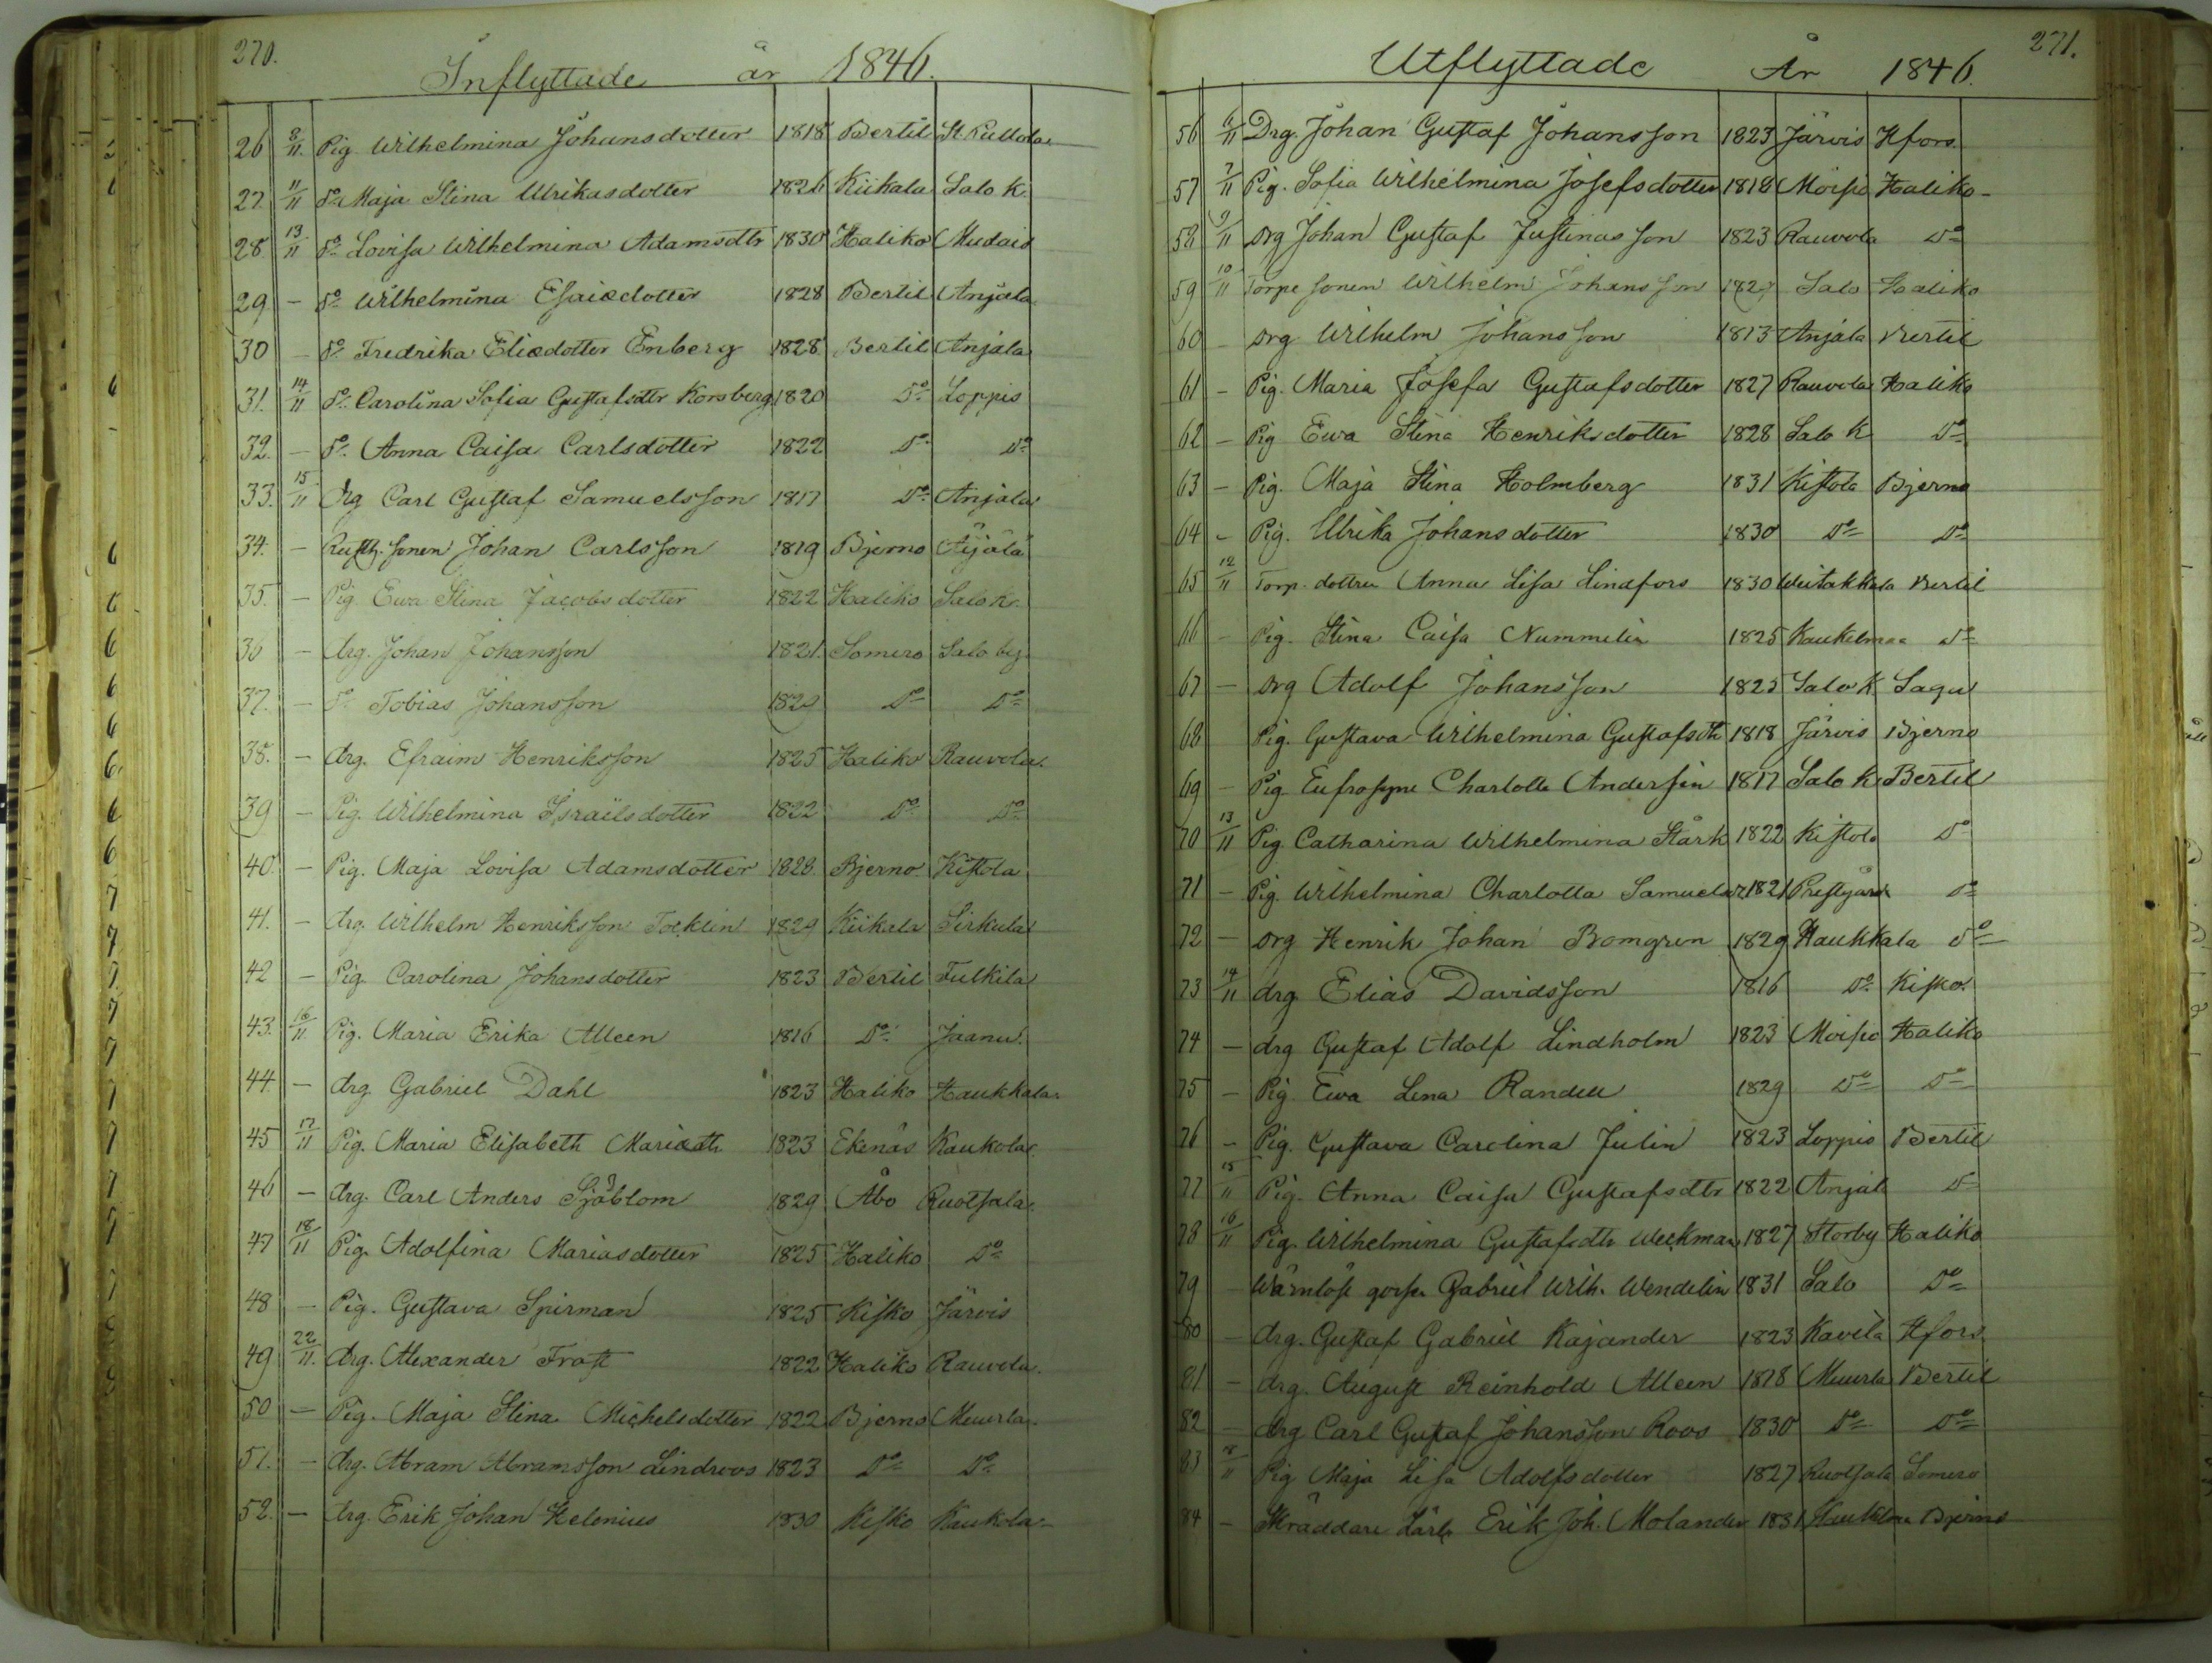 270.
Inflyttade år 1846.
26 8/11. Pig Wilhelmina Johansdotter 1818 Bertil
27. 11/11 Do Maja Stina Ulrikasdotter 1826 Kiikala Salo K.
28. 13/11 Do Lovisa Wilhelmina Adamsdtr 1830 Haliko Mudais
29 - Do Wilhelmina Esaiædotter 1828 Bertil Anjala
30 - Do Fredrika Eliædotter Enberg 1828 Bertil Anjala
31. 14/11 Do Carolina Sofia Gustafsdtr Korsberg 1820 Do Loppis
32. - Do Anna Caisa Carlsdotter 1822 Do Do
33. 15/11 Drg Carl Gustaf Samuelsson 1817 Do Anjala
34. - Rusth. sonen Johan Carlsson 1819 Bjerno Äijälä
35. - Pig Ewa Stina Jacobsdotter 1822 Haliko Salo K.
36 - drg. Johan Johansson 1821 Somero Salo by
37. - Do Tobias Johansson 1829 Do Do
38. - drg. Efraim Henriksson 1825 Haliko Rauvola.
39 - Pig. Wilhelmina Israelsdotter 1822 Do Do
40. - Pig. Maja Lovisa Adamsdotter 1828 Bjerno Kistola
41. - drg. Wilhelm Henriksson Tocklin 1829 Kiikala Sirkula
42 - Pig. Carolina Johansdotter 1823 Bertil Tulkila
43. 16/11. Pig. Maria Erika Alleen 1816 Do Jaanu.
44. - drg. Gabriel Dahl 1823 Haliko Haukkala.
45 17/11 Pig. Maria Elisabeth Mariædtr 1823 Ekenäs Kaukola
46 - drg. Carl Anders Sjöblom 1829 Åbo Ruotsala.
47 18/11 Pig. Adolfina Mariasdotter 1825 Haliko Do
48 - Pig. Gustava Spirman 1825 Kisko Järvis
49 22/11. drg. Alexander Frost 1822 Haliko Rauvola.
50 - Pig. Maja Stina Michelsdotter 1822 Bjerno Muurla.
51. - drg. Abram Abramsson Lindroos 1823 Do Do
52. - drg. Erik Johan Helenius 1830 Kisko Kaukola
271.
Utflyttade År 1846.
56 6/11 Drg. Johan Gustaf Johansson 1823 Järvis Hfors.
57 7/11 Pig. Sofia Wilhelmina Josefsdotter 1818 Moisio Haliko
58 9/11 drg Johan Gustaf Justinasson 1823 Rauvola Do
59 10/11 Torpe sonen Wilhelm Johansson 1827 Salo Haliko
60 - drg Wilhelm Johansson 1813 Anjala Bertil
61 - Pig. Maria Josefa Gustafsdotter 1827 Rauvola Haliko
62 - Pig Ewa Stina Henriksdotter 1828 Salo K Do
63 - Pig. Maja Stina Holmberg 1831 Kistola Bjerno
64 - Pig. Ulrika Johansdotter 1830 Do Do
65 12/11 Torp. dottren Anna Lisa Lindfors 1830 Weitakkala Bertil
66 - Pig. Stina Caisa Nummelin 1825 Kaukelmaa Do
67 - drg Adolf Johansson 1825 Salo K Sagu
68 Pig. Gustava Wilhelmina Gustafsdtr 1818 Järvis Bjerno
69 - Pig Eufrosyne Charlotta Andersin 1817 Salo K Bertil
70 13/11 Pig Catharina Wilhelmina Stark 1822 Kistola Do
71 - Pig. Wilhelmina Charlotta Samuelsdr 1821 Prestgård Do
72 - drg Henrik Johan Bomgren 1829 Haukkala Do
73 14/11 drg Elias Davidsson 1816 Do Kisko.
74 - drg Gustaf Adolf Lindholm 1823 Moisio Haliko
75 - Pig Ewa Lena Randell 1829 Do Do
76 - Pig. Gustava Carolina Julin 1823 Loppis Bertil
77 15/11 Pig. Anna Caisa Gustafsdtr 1822 Anjala Do
78 16/11 Pig. Wilhelmina Gustafsdtr Weckman 1827 Storby Haliko
79 - Wärnlöse gosse Gabriel Wilh. Wendelin 1831 Salo Do
80 - drg. Gustaf Gabriel Kajander 1823 Kavila Hfors
81 - drg. August Reinhold Alleen 1818 Muurla Bertil
82 - drg Carl Gustaf Johansson Roos 1830 Do Do
83 18/11 Pig Maja Lisa Adolfsdotter 1827 Ruotsala Somero
84 - Skräddare Lärl. Erik Joh. Molander 1831 Bjerno